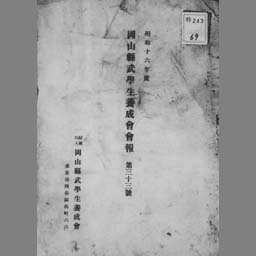 昭和十六年度
岡山縣武學生養成會會報 第三十三號
財團法人 岡山縣武學生養成會
特243
69